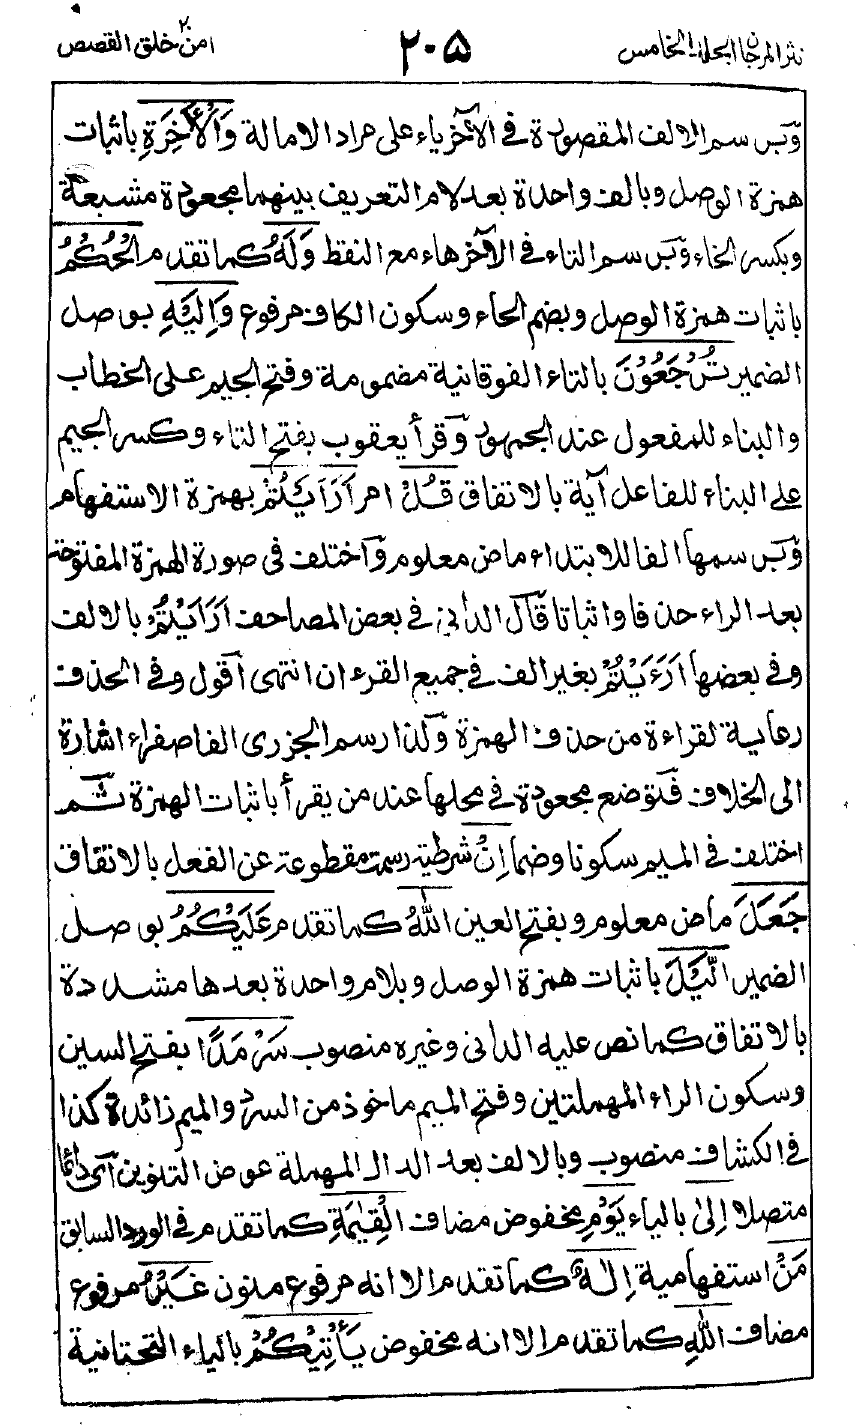 نثر المرجان الجلد الخامس ٢٠٥ امن خلق ٢٠ القصص
وَبرسم الالف المقصورة فى الأخرىاء على مراد الامالة وَالْأٓخِرَةِ باثبات
همزة الوصل وبالف واحدة بعد لام التعريف بينهما مجعودة مشبعة
وبكسر الخاء وبرسم التاء فى الآخرهاء مع النقط وَلَهُ كما تقدم الْحُكْمُ
باثبات همزة الوصل وبضم الحاء وسكون الكاف مرفوع وَاِلَيْهِ بوصل
الضمير تُرْجَعُوْنَ بالتاء الفوقانية مضمومة وفتح الجيم على الخطاب
والبناء للمفعول عند الجمهور وقرأ يعقوب بفتح التاء وكسر الجيم
على البناء للفاعل آية بالاتفاق قُلْ امر اَرَاَيْتُمْ بهمزة الاستفهام
وبرسمها الفا للابتداء ماض معلوم واختلف فى صورة الهمزة المفتوحة
بعد الراء حذفا واثباتا قال الدانى فى بعض المصاحف اَرَاَيْتُمْ بالالف
وفى بعضها اَرَءَيْتُمْ بغير الف فى جميع القرءان انتهى اقول وفى الحذف
رعاية لقراءة من حذف الهمزة ولذا رسم الجزرى الفا صفراء اشارة
الى الخلاف فتوضع مجعودة فى محلها عند من يقرأ باثبات الهمزة ثم
اختلف فى الميم سكونا وضما اِنْ شرطية رسمت مقطوعة عن الفعل بالاتفاق
جَعَلَ ماض معلوم وبفتح العين اللّٰهُ كما تقدم عَلَيْكُمُ بوصل
الضمير الَّيْلَ باثبات همزة الوصل وبلام واحدة بعدها مشددة
بالاتفاق كما نص عليه الدانى وغيره منصوب سَرْمَدًا بفتح السين
وسكون الراء المهملتين وفتح الميم ماخوذ من السرد والميم زائدة كذا
فى الكشاف منصوب وبالالف بعد الدال المهملة عوض التنوين اى دائما
متصلا اِلىٰ بالياء يَوْمِ مخفوض مضاف الْقِيٰمَةِ كما تقدم فى الورد السابق
مَنْ استفهامية اِلٰهٌ كما تقدم الا انه مرفوع منون غَيْرُ مرفوع
مضاف اللّٰهِ كما تقدم الا انه مخفوض يَاْتِيْكُمْ بالياء التحتانية